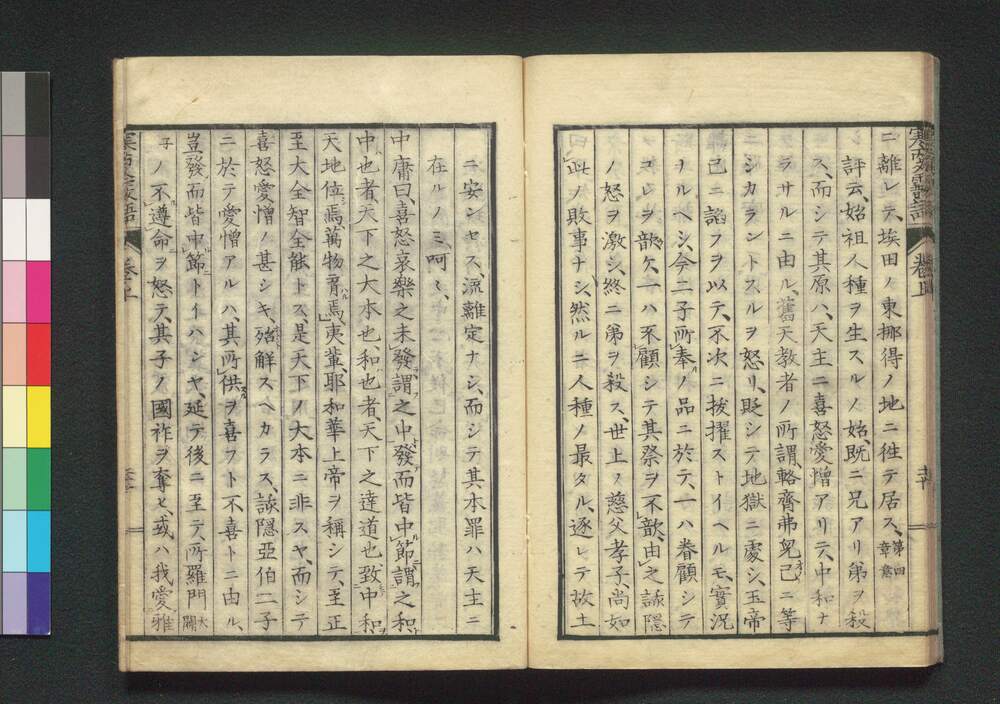 ニ離レテ、埃田ノ東挪得ノ地ニ徃テ居ス、第四章意
評云、始祖人種ヲ生スルノ始、既ニ兄アリ第ヲ殺
ス、而シテ其原ハ、天主ニ喜怒愛憎アリテ、中和ナ
ラサルニ由ル、舊天教者ノ所謂、輅齊弗兒己ニ等
シカラントスルヲ怒リ、貶シテ地獄ニ處シ、玉帝
己ニ諂フヲ以テ、不次ニ拔擢ストイヘルモ、實況
ヲルヘシ、今二子所奉ノ品ニ於テ、一ハ眷顧シテ
コレヲ歆ケ、一ハ不顧シテ其祭ヲ不歆、由之該隠
ノ怒ヲ激シ、終ニ第ヲ殺ス、世上ノ慈父孝子、尚如
此ノ敗事ナシ、然ルニ人種ノ最タル、逐レテ故土
ニ安ンセス、流離定ナシ、而シテ其本罪ハ天主ニ
在ルノミ、呵〻、
中庸曰、喜怒哀樂之未發、謂之中、發而皆中節、謂之和、
中也者、天下之大本也、和也者、天下之達道也、致中和、
天地位焉、萬物育焉、夷輩、耶和華上帝ヲ稱シテ、至正
至大全智全能トス、是天下ノ大本ニ非スヤ、而シテ
喜怒愛憎ノ甚シキ、殆解スヘカラス、該隠亞伯二子
ニ於テ愛憎アルハ、其所供ヲ喜フト不喜トニ由ル、
豈發而皆中節トイハンヤ、延テ後ニ至テ、所羅門大闢
子ノ不遵命ヲ怒テ、其子ノ國祚ヲ奪ヒ、或ハ我愛雅
巻上